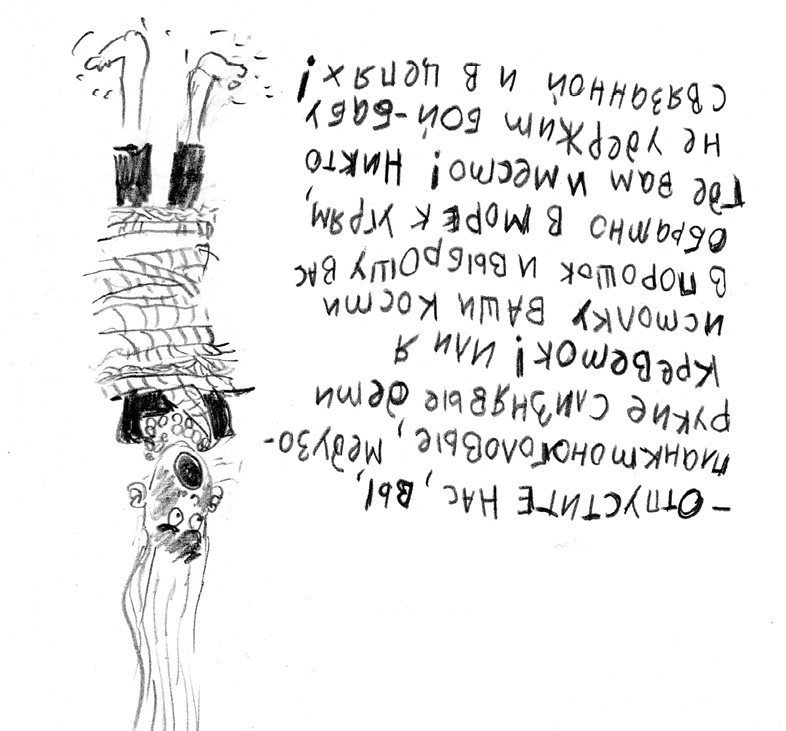 - Отпустите нас, вы,
планктоноголовые, медузо-
рукие слизнявые дети
креветок! Или я
истолку ваши кости
в порошок и выброшу вас
обратно в море к угрям,
где вам и место! Никто
не удержит бой-бабу
связанной и в цепях!